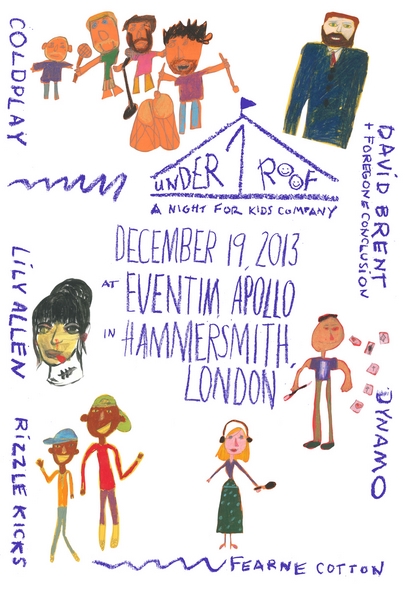 COLDPLAY
DAVID BRENT
+ FOREGONE CONCLUSION
UNDER 1 ROOF
A NIGHT FOR KIDS COMPANY
DECEMBER 19, 2013
AT EVENTIM APOLLO
IN HAMMERSMITH,
LONDON
LILY ALLEN
DYNAMO
RIZZLE KICKS
FEARNE COTTON